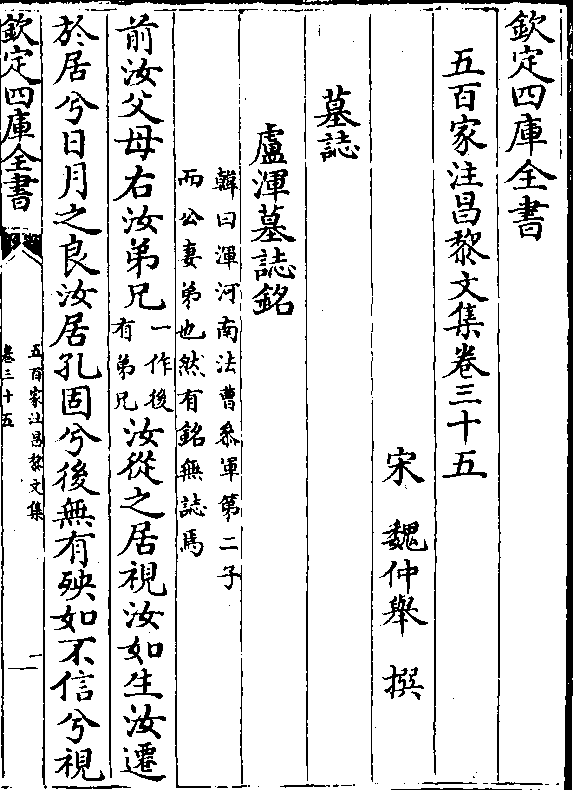 欽定四庫全書
五百家注昌黎文集卷三十五
宋 魏仲舉 撰
墓誌
盧渾墓誌銘
韓曰渾河南法曹叅軍第二子
而公妻弟也然有銘無誌焉
前汝父母右汝弟兄一作後有弟兄汝從之居視汝如生汝遷
於居兮日月之良汝居孔固兮後無有殃如不信兮視
欽定四庫全書
五百家注昌黎文集
卷三十五
一